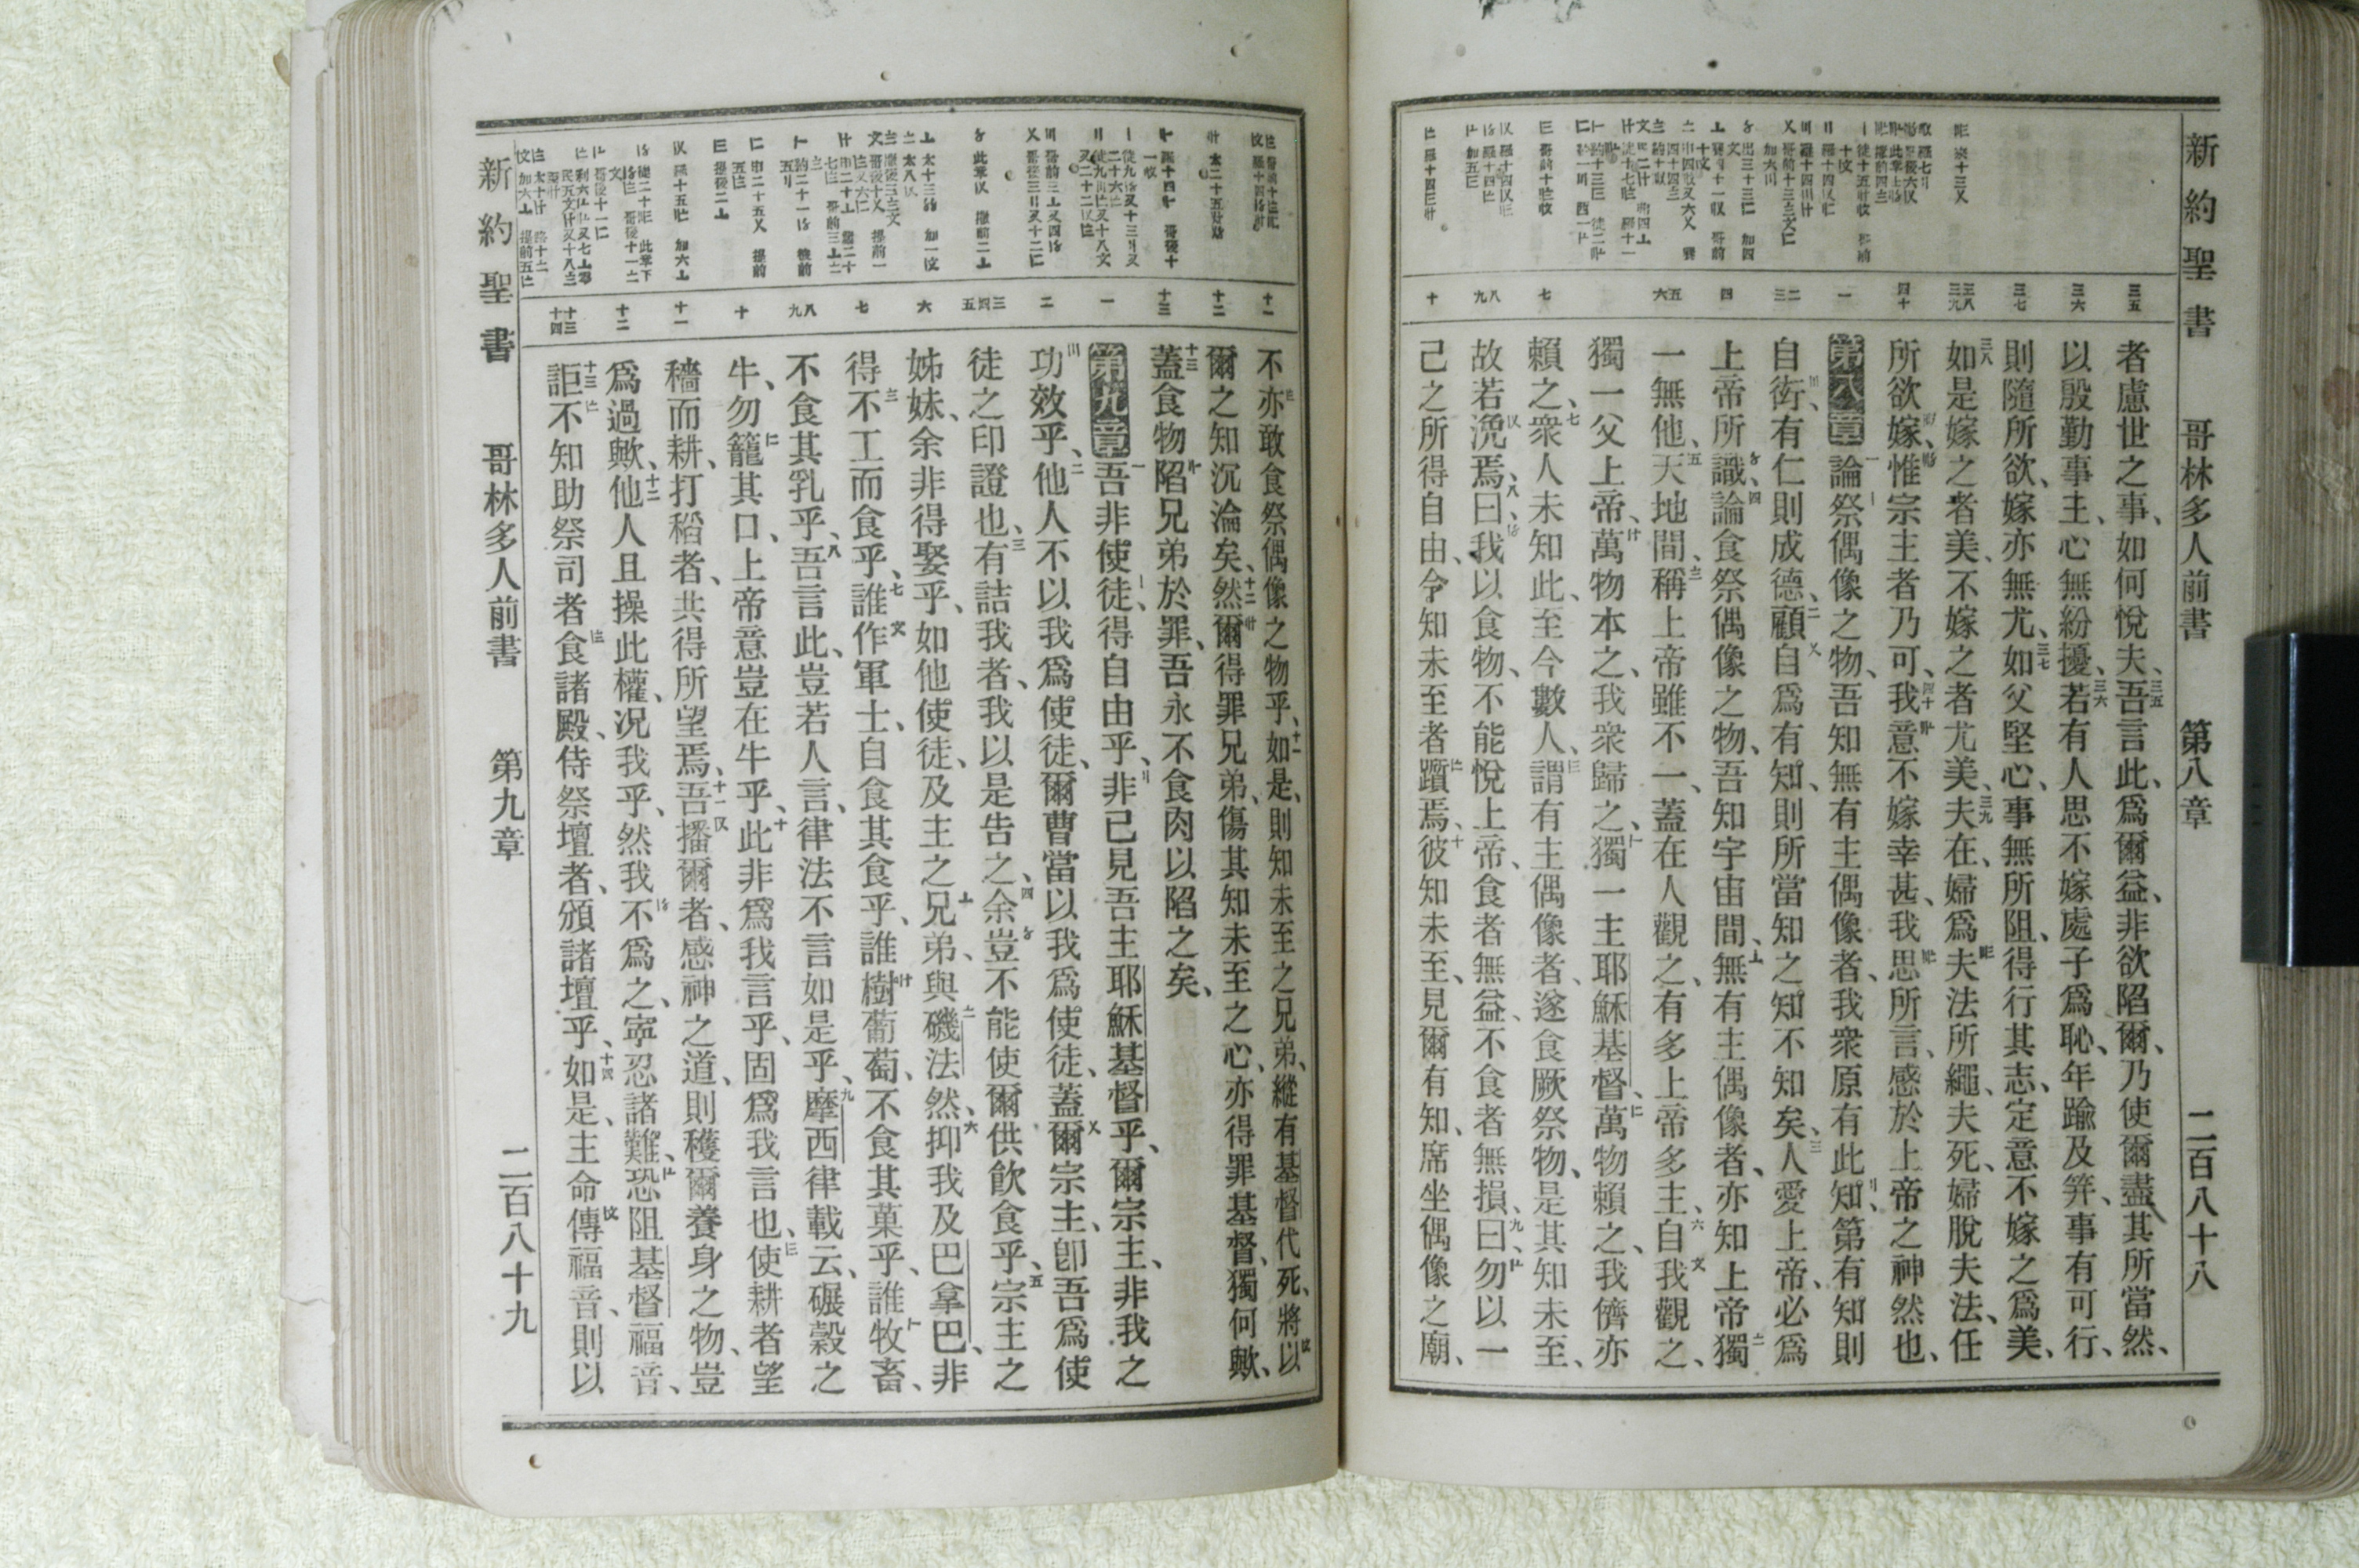 新約聖書 哥林多人前書 第八章 二百八十八
三五
三六
三七
三八 三九
四十
一
二 三
四
五 六
七
八 九
十
者慮世之事、如何悅夫、三五吾言此、爲爾益、非欲陷爾、乃使爾盡其所當然、
以殷勤事主、心無紛擾、三六若有人思不嫁處子爲恥、年踰及笄、事有可行、
則隨所欲、嫁亦無尤、三七如父堅心、事無所阻、得行其志、定意不嫁之爲美、
三八如是嫁之者美、不嫁之者尤美、三九夫在、婦爲夫法所繩、夫死、婦脫夫法、任
所欲嫁、惟宗主者乃可、四十我意不嫁幸甚、我思所言、感於上帝之神然也、
第八章 一論祭偶像之物、吾知無有主偶像者、我衆原有此知、第有知則
自衒、有仁則成德、二顧自爲有知、則所當知之知不知矣、三人愛上帝、必爲
上帝所識、四論食祭偶像之物、吾知宇宙間、無有主偶像者、亦知上帝獨
一無他、五天地間、稱上帝雖不一、蓋在人觀之、有多上帝多主、六自我觀之、
獨一父上帝、萬物本之、我衆歸之、獨一主耶穌基督、萬物賴之、我儕亦
賴之、七衆人未知此、至今數人、謂有主偶像者、遂食厥祭物、是其知未至、
故若浼焉、八曰、我以食物、不能悅上帝、食者無益、不食者無損、九曰、勿以一
己之所得自由、令知未至者躓焉、十彼知未至、見爾有知、席坐偶像之廟、
十一
十二
十三
一
二
三 四 五
六
七
八 九
十
十一
十二
十三 十四
不亦敢食祭偶像之物乎、十一如是、則知未至之兄弟、縱有基督代死、將以
爾之知沉淪矣、十二然爾得罪兄弟、傷其知未至之心、亦得罪基督、獨何歟、
十三蓋食物陷兄弟於罪、吾永不食肉以陷之矣、
第九章 一吾非使徒、得自由乎、非已見吾主耶穌基督乎、爾宗主、非我之
功效乎、二他人不以我爲使徒、爾曹當以我爲使徒、蓋爾宗主、卽吾爲使
徒之印證也、三有詰我者、我以是告之、四余豈不能使爾供飮食乎、五宗主之
姊妹、余非得娶乎、如他使徒、及主之兄弟、與磯法然、六抑我及巴拿巴、非
得不工而食乎、七誰作軍士、自食其食乎、誰樹葡萄、不食其菓乎、誰牧畜、
不食其乳乎、八吾言此、豈若人言、律法不言如是乎、九摩西律載云、碾穀之
牛、勿籠其口、上帝意豈在牛乎、十此非爲我言乎、固爲我言也、使耕者望
穡而耕、打稻者、共得所望焉、十一吾播爾者、感神之道、則穫爾養身之物、豈
爲過歟、十二他人且操此權、况我乎、然我不爲之、寧忍諸難、恐阻基督福音、
十三詎不知助祭司者食諸殿、侍祭壇者、頒諸壇乎、十四如是、主命傳福音、則以
新約聖書 哥林多人前書 第九章 二百八十九